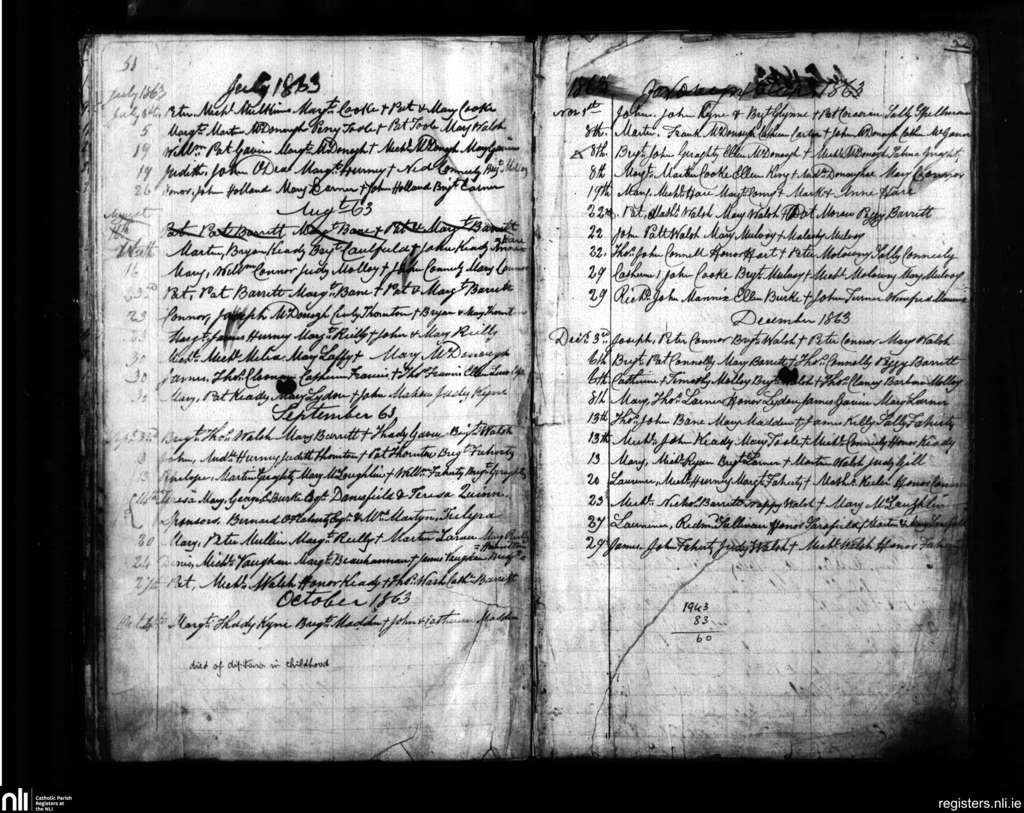 51
July 1863
July 1863
July 5th Peter, Michl Mulkins Margt Cooke + Pat & Mary Cooke
5 Margt Martn McDonough Penny Toole + Pat Toole Mary Walsh
19 Willm Pat Gavin Margt McDonogh + Michl McDonogh Mary Gavin
19 Judith, John O'Dea Margt Hurney + Ned Conneely
26 Honor, John Holland Mary Larner + John Holland Bridgt Larner
Augt 63
August
Pat Pat Barrett Margt Bane + Pat & Margt Barrett
Martin, Bryan Keady Bridgt Caulfield + John Keady
16 Mary, Willm Connor Judy Molloy + John Conneely Mary Connor
23rd Pat, Pat Barrett Margt Bane + Pat & Margt Barrett
23 Connor, Joseph McDonogh Thornton + Bryan & Mary Thornton
23 Margt James Hurney Margt Reilly + John & Mary Reilly
30 Michl Michl Melia Mary Laffy + Mary McDonough
30 James, Thos Clooney Catherine Francis + Thos Francis Ellen
30 Mary, Pat Keady Mary Lydon + John Judy Kyne
September 63
Sept 3rd Bridgt Thos Walsh Mary Barrett + Thady Gavin Bridgt Walsh
John, Michl Hurney Judith Thornton + Pat Thornton Bridgt Faherty
13 Penelope, Martin Geraghty Mary McLoughlin + Willm Faherty Bridgt Geraghty
14th Teresa Mary, George S. Burke Esqr Danesfield & Teresa Quinn.
Sponsors Bernard O'Flaherty Esqr & Mrs Martyn,
20 Mary, Peter Mullin Margt Reilly + Martin Larner Mary
24 Denis, Michl Vaughan Margt Beauhannan + James Vaughan
27th Pat, Michl Walsh Honor Keady + Thos Walsh Cathn Barrett
October 1863
Oct 4th Margt Thady Kyne Bridgt Madden + John & Catherine Madden
died of diptera in childhood
1863 1863
Nov 1st John. John Kyne & Bridgt Glynne + Pat Corcoran Sally Spellman
8th Martin, Frank McDonough Cathern Carter + John McDonough Cathn McGann
8th Bridgt John Geraghty Ellen McDonogh + Michl McDonogh Geraghty
8th Margt Martin Cooke Ellen King + Michl Donaghue Mary Connor
19th Mary, Michl Hare Margt + Mark & Anne Hare
22nd Pat, Walsh Mary Walsh + Pat Moran Peggy Barrett
22 John Patt Walsh Mary Mulroy + Malachy Mulroy
22. Thos John Connell Honor Hart + Peter Moloney Sally Conneely
29 Catherine, John Cooke Bridgt Mulroy + Michl Moloney Mary Mulroy
29 Richd John Mannin Ellen Burke + John Turner Winifred Mannin
December 1863
Decr 3rd Joseph, Peter Connor Bridgt Walsh + Peter Connor Mary Walsh
6th Bridgt Pat Connolly Mary Barrett + Thos Connolly Peggy Barrett
6th Catherine, Timothy Molloy Bridgt Walsh + Thos Clancy Barbara Molloy
8th Mary, Thos Larner Honor Lydon James Gavin Mary Larner
13th Thos John Bane Mary Madden + James Kelly Sally Faherty
13th Michl John Keady Mary Toole + Michl Conneely Honor Keady
13 Mary, Michl Ryan Bridgt Larner + Martin Walsh Judy Gill
20 Laurence, Michl Hurney Margt Faherty + Honor
23 Michl Nichos Barrett Nappy Walsh + Mary McLaughlin
27 Laurence, Redmd Fallman Honor Sarsfield Martin & Mary Sarsfield
29 James, John Fahert Judy Walsh + Michl Walsh Honor
1943
83
60
nli
Catholic Parish
Registers at
the NLI
registers.nli.ie